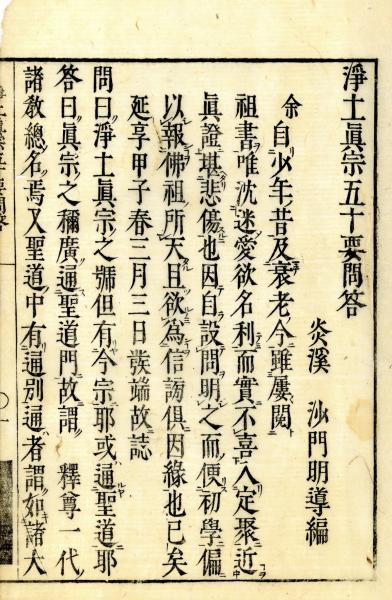 淨土眞宗五十要問答
炎溪　沙門明導編
余自少年昔及衰老今雖屢閱
祖書唯沈迷愛欲名利而實不喜入定聚近
眞證堪悲傷也因自設問明之而便初學偏
以報佛祖所天且欲爲信謗俱因緣也已矣
延享甲子春三月三日發端故誌
問曰淨土眞宗之號但有今宗耶或通聖道耶
答曰眞宗之稱廣通聖道門故謂釋尊一代
諸敎總名焉又聖道中有通別通者謂如諸大